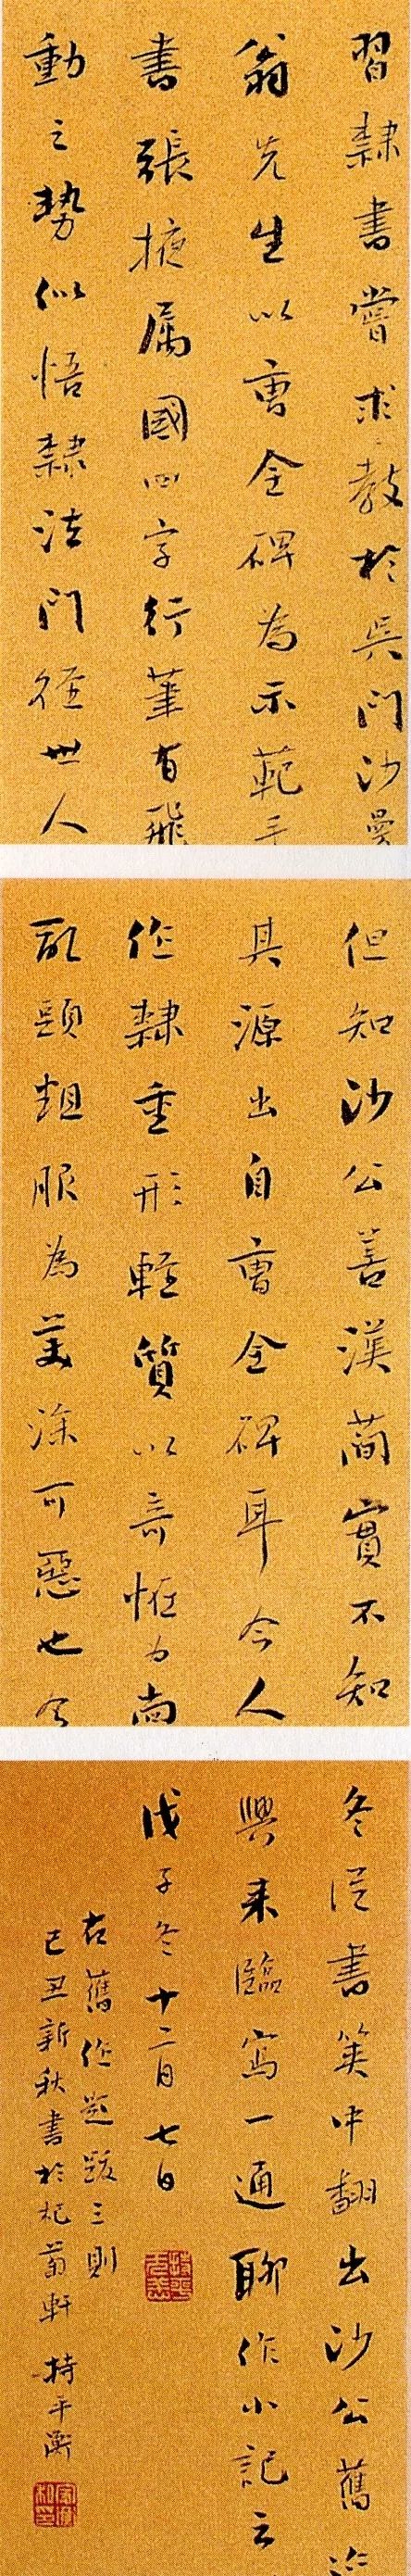 習隸書嘗求教於吳門沙曼
翁先生以曹全碑為示範手
書張掖属國四字行筆有飛
動之勢似悟隸法門徑世人
但知沙公善漢簡實不知
其源出自曹全碑耳今人
作隸重形輕質以奇怪为尚
亂頭粗服為美深可惡也今
冬從書篋中翻出沙公舊迹
興来臨寫一通聊作小記云
戊子冬十二月七日
右舊作题跋三則
己丑新秋書於杞菊軒 持平